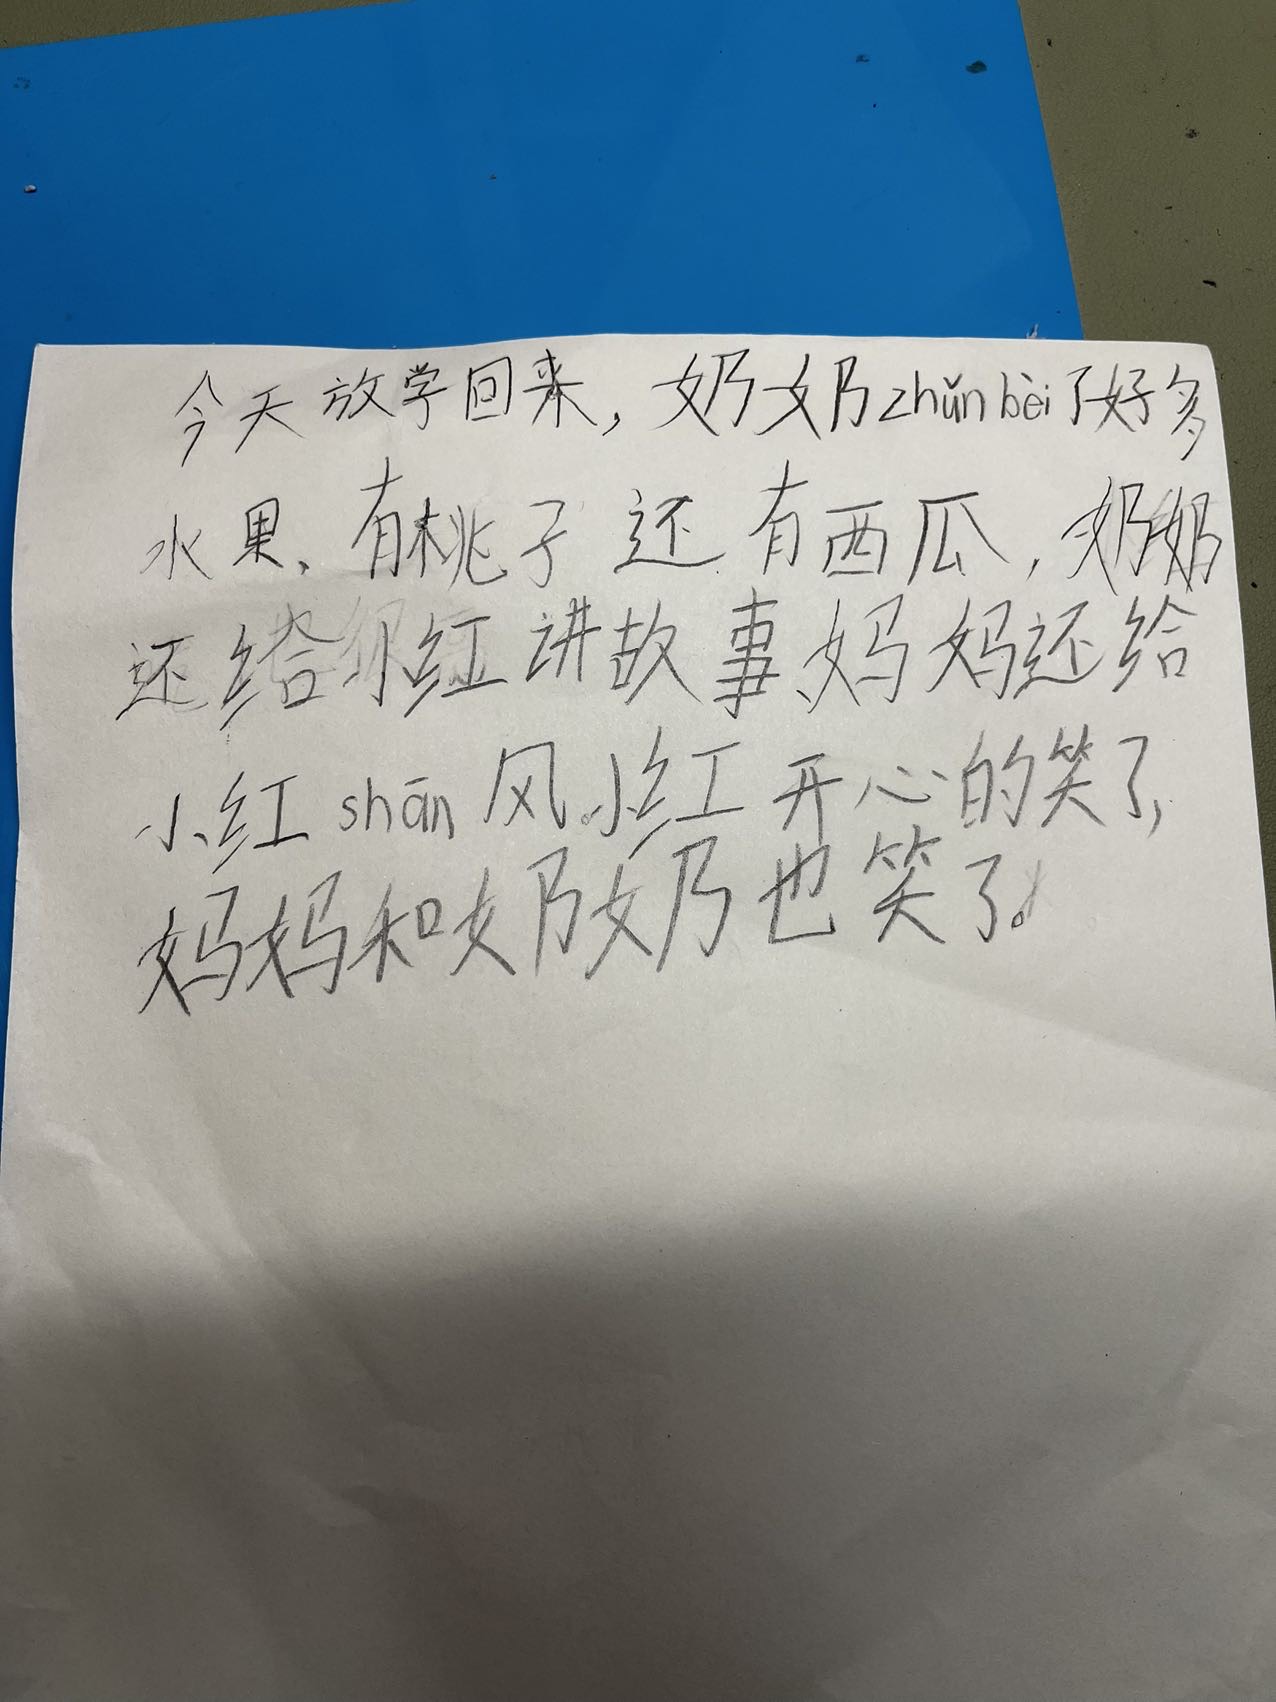 今天放学回来，奶奶zhǔn bèi了好多
水果、有桃子还有西瓜，奶奶
还给小红讲故事、妈妈还给
小红shān风。小红开心的笑了，
妈妈和奶奶也笑了。